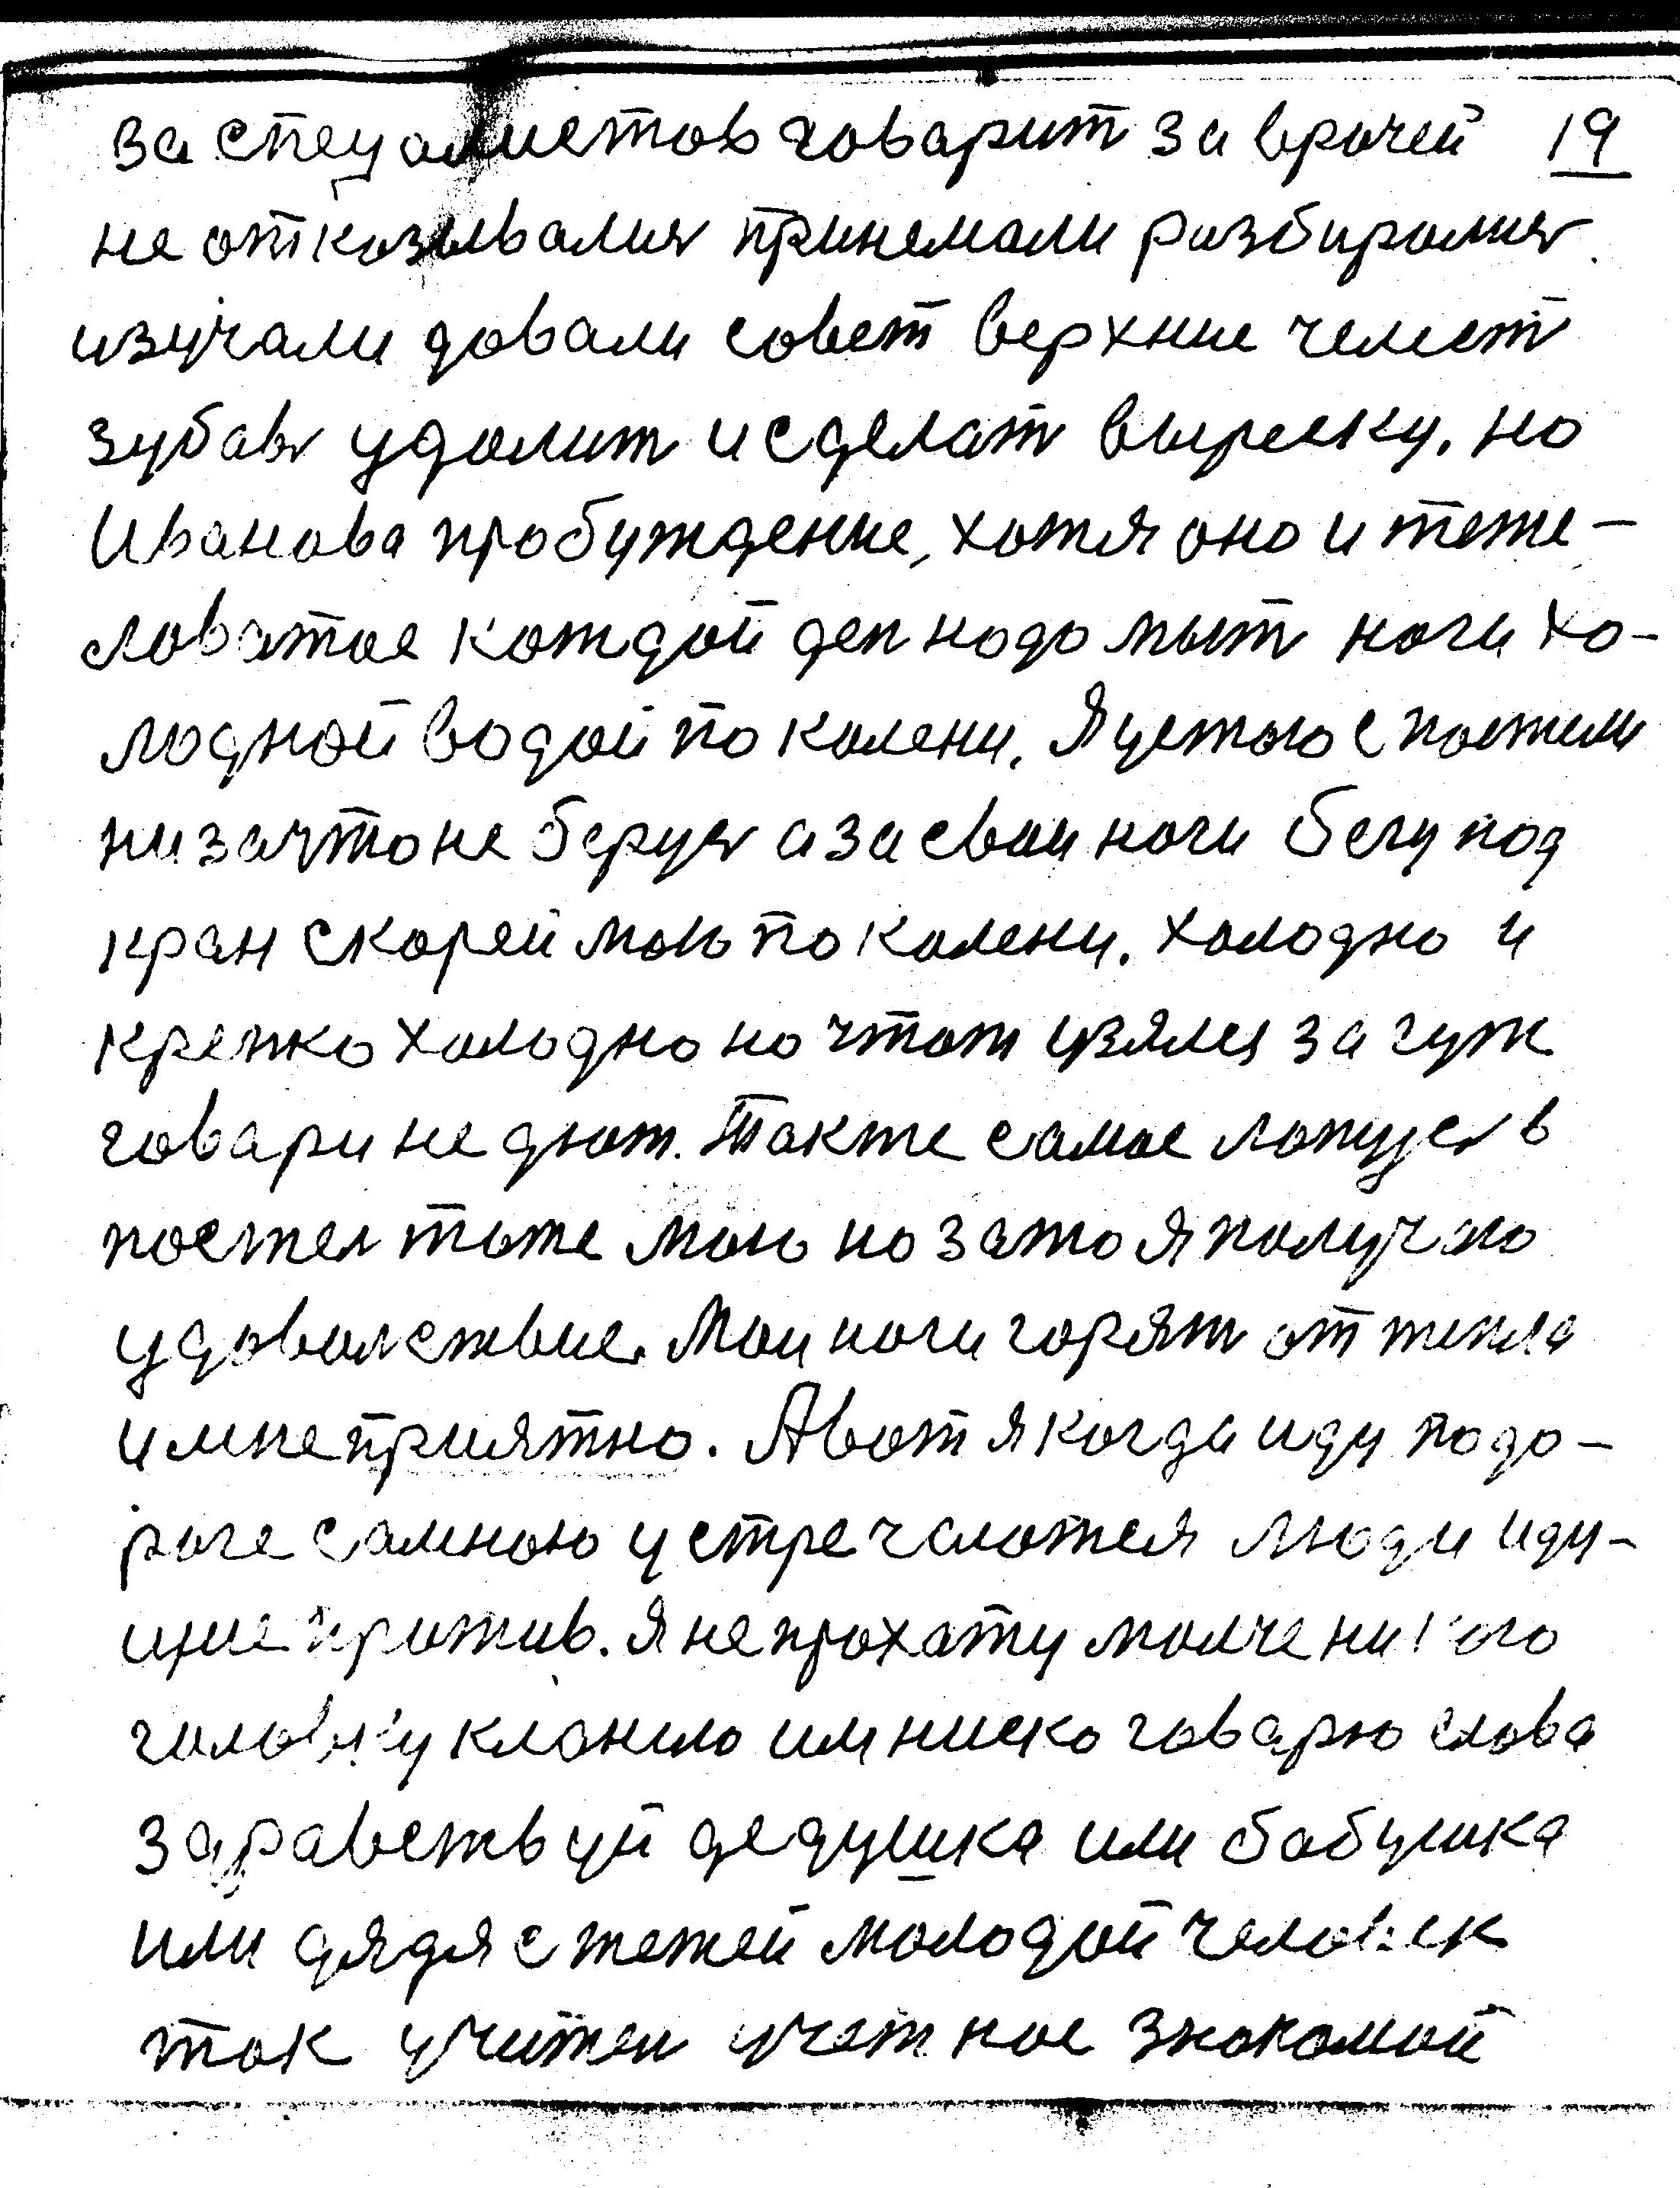 за спецалистов говарит за врачей 19
не отказывалися принемали разбиралися
изучали давали совет верхние челюст
зубавя удалит и сделат вырезку. но
Иванова пробуждение, хотя оно и теже-
ловатое каждой ден надо мыт ноги хо-
лодной водой по колени. Я устаю с постели
ни за что не беруся а за свои ноги бегу под
кран скорей мою по колени. холодно и
крепко холодно но что ты узялся за гуж
говари не дюж. Также самое ложуся в
постел тоже мою но зато я получаю
удоволствие. Мои ноги горят от тепла
и мне приятно. А вот я когда иду по до-
роге самною устречаются люди иду-
щие против. Я не прохажу молче никого
головку клоняю им ниско говарю слова
здравствуй дедушка или бабушка
или дядя с тетей молодой человек
так учител учет ное знакомой